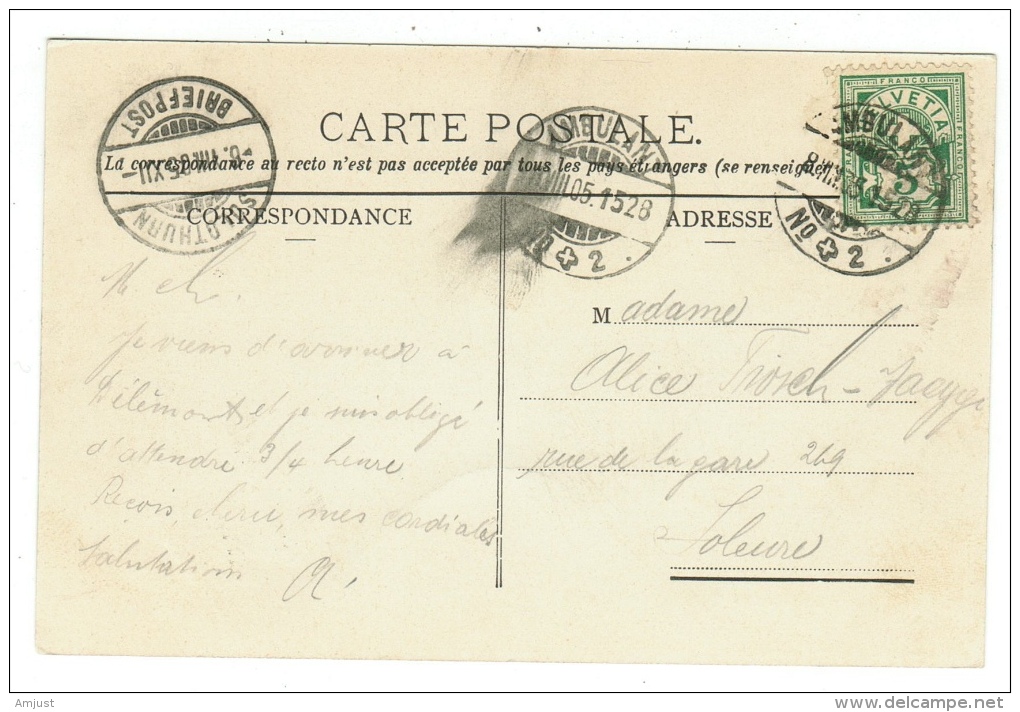 CARTE POSTALE.
La correspondance au recto n'est pas acceptée par tous les pays étrangers (se renseigner
CORRESPONDANCE
ADRESSE
SOLOTHURN
BRIEFPOST
AMBULANT
05.1528
No 2.
FRANCO
HELVETIA
5
AMBULANT
No 2.
M. ch.
Je viens d'arriver à
Délémont, et je suis obligé
d'attendre 3/4 heure
Reçois, mes cordiales
salutations
A.
Madame
Alice Frösch-Jaeggi
rue de la gare 269
Soleure
Amjust
www.delcampe.net